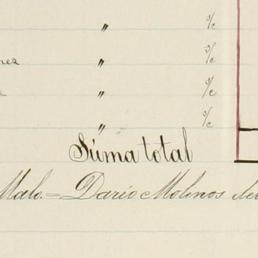 " %
" %
" %
" %
Súma total
Malo.= Dario Molinos